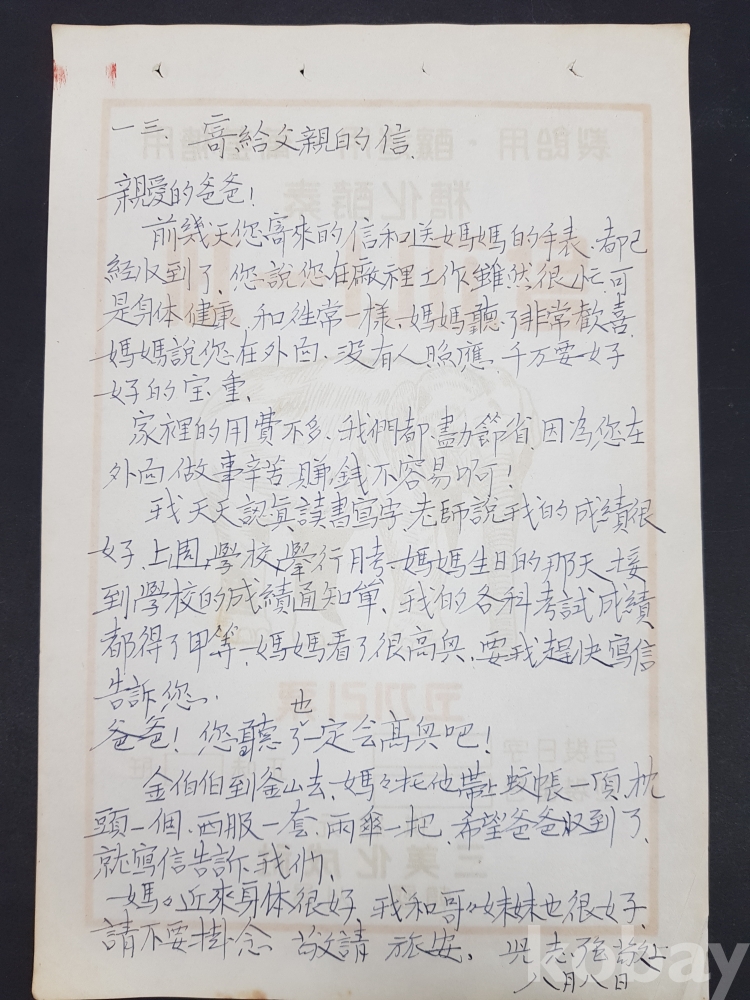 一三. 寄給父親的信.
親愛的爸爸!
前幾天您寄來的信和送媽媽的手表.都已
經收到了.您說您在廠裡工作雖然很忙.可
是身体健康.和往常一樣.媽媽聽了非常歡喜.
媽媽說您在外面.没有人照應.千万要好
好的宝重.
家裡的用費不多.我們都.盡力節省.因為您在
外面.做事辛苦.賺錢不容易啊!
我天天認真讀書寫字.老師說我的成績很
好.上周.學校.舉行月考.媽媽生日的那天.接
到學校的成績通知單.我的各科考試成績
都得了甲等.媽媽看了很高興.要我趕快寫信
告訴您.
爸爸!您聽了也一定会高興吧!
金伯伯到釜山去.媽々托他帶上蚊帳一頂.枕
頭一個.西服一套.雨傘一把.希望爸爸收到了.
就寫信告訴我們.
媽々近來身体很好.我和哥々妹妹也很好.
請不要掛念 敬請 旅安.
八月八日
製飴用
糖化酵素
코끼리표
三美化成
kobay